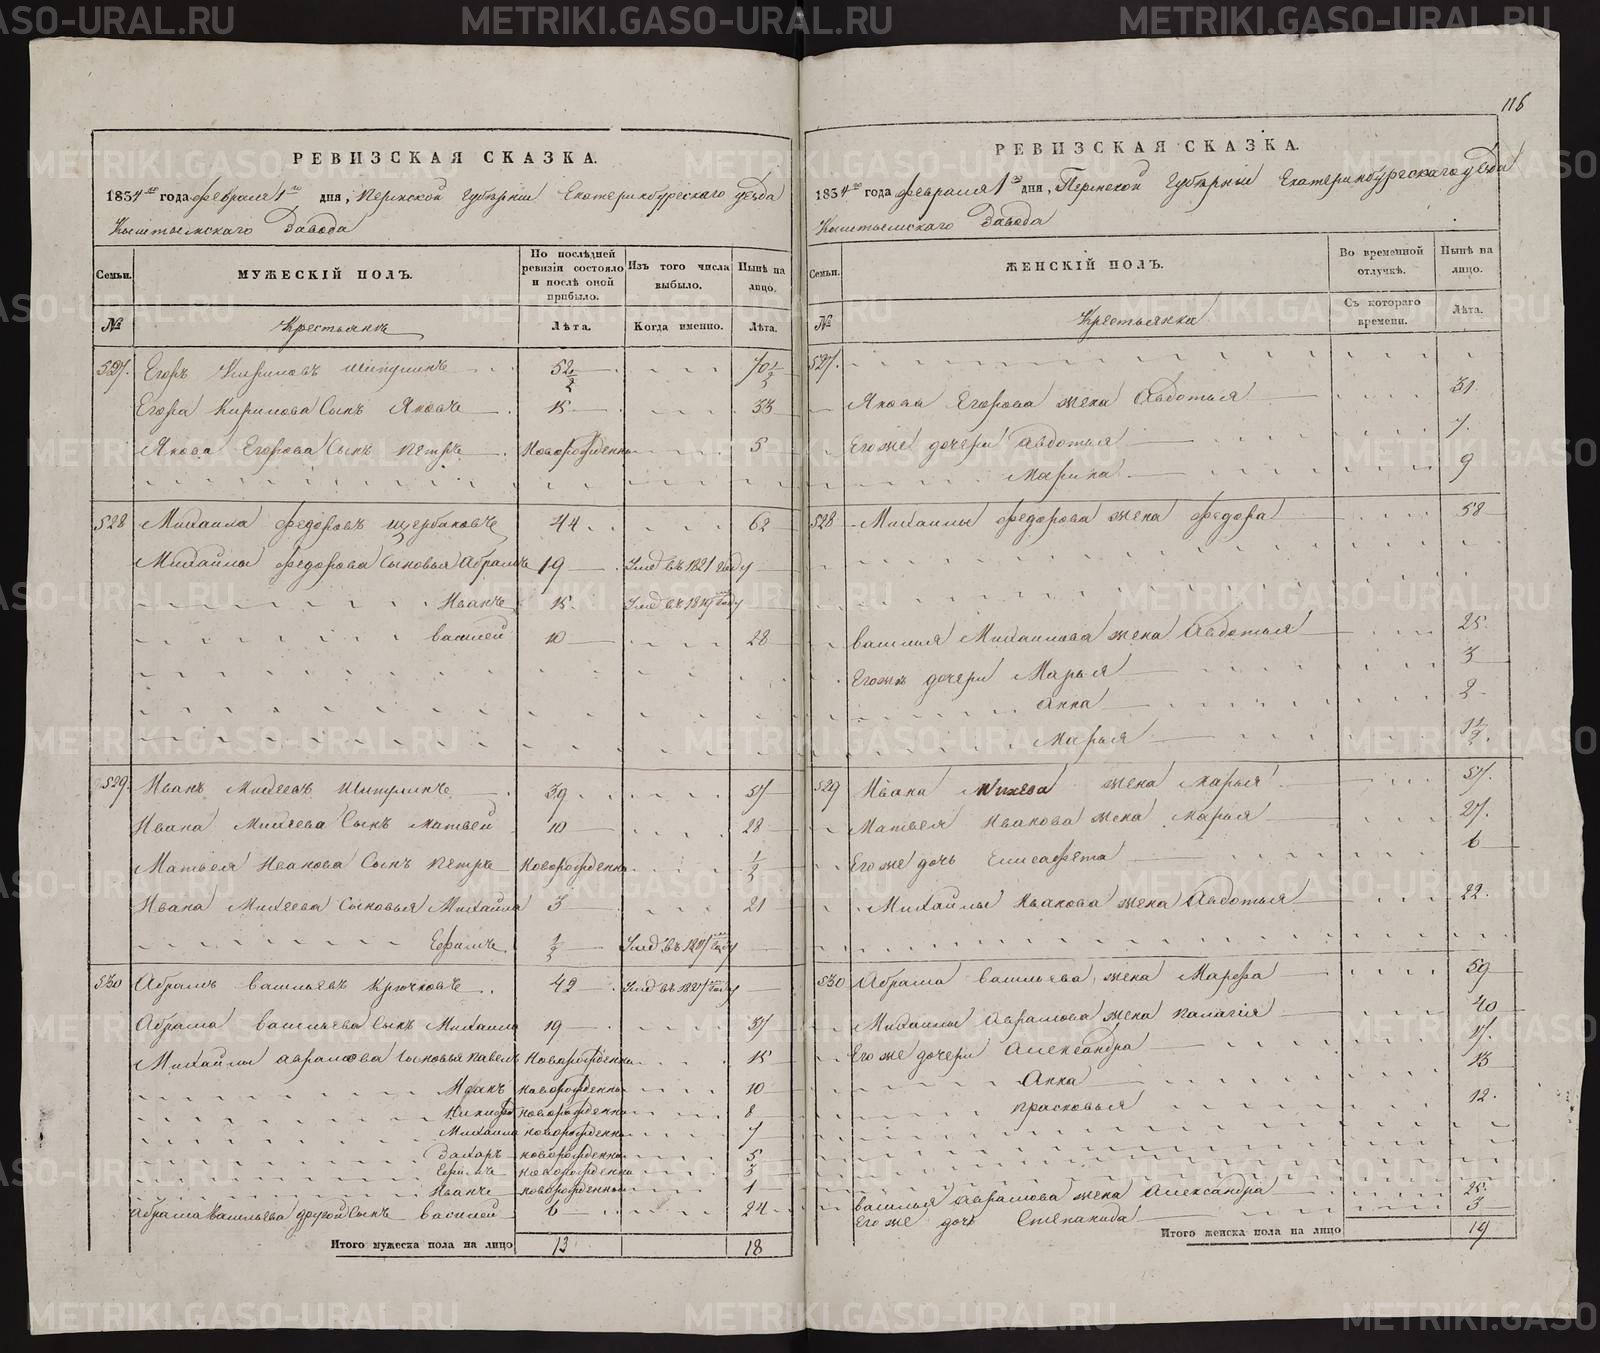 116
РЕВИЗСКАЯ СКАЗКА.
1834 го года февраля 1 го дня, Пермской Губернии Екатеринбургского уезда
Кыштымскаго Завода
Семьи. МУЖЕСКІЙ ПОЛЪ. По послѣдней ревизіи состояло и послѣ оной прибыло. Изъ того числа выбыло. Нынѣ на лицо.
№ Крестьянъ Лѣта. Когда именно. Лѣта.
527. Егоръ Кириловъ Шипулинъ 52 1/2 70 1/2
Егора Кирилова Сынъ Яковъ 15 33
Якова Егорова Сынъ Петръ Новорожденны 5
528 Михаила Федоровъ Щербаковъ 44 62
Михайлы Федорова Сыновья Абрамъ 19 Умер въ 1821 году
Иванъ 15 году
Василей 10 28
529. Иванъ Михеевъ Шипулинъ 39 57
Ивана Михеева Сынъ Матвей 10 28
Матвея Иванова Сынъ Петръ Новорожденны 1/2
Ивана Михеева Сыновья Михайла 3 21
Ефимъ 1/2 Умер въ году
530 Абрамъ Васильевъ Крючковъ 42 Умер въ году
Абрама Васильева Сынъ Михаила 19 37
Михайлы Аврамова Сыновья Павелъ Новорожденны 15
Иванъ новорожденны 10
новорожденны 8
Михаила новорожденны 7
Захаръ новорожденны 5
Ефимъ новорожденны 3
Иванъ новорожденны 1
Абрама Васильева другой Сынъ Василей 6 24
Итого мужеска пола на лицо 13 18
РЕВИЗСКАЯ СКАЗКА.
1834 го года февраля 1 го дня, Пермской Губерніи Екатеринбургскаго уезда
Кыштымскаго Завода
Семьи. ЖЕНСКІЙ ПОЛЪ. Во временной отлучкѣ. Нынѣ на лицо.
№ Крестьянка Съ котораго времени. Лѣта.
527.
Якова Егорова жена Авдотья 31
Егоже дочери Авдотья 7.
Марина 9
528 Михайлы Федорова жена Федора 58
Василья Михаилова жена Авдотья 25.
Егожъ дочери Марья 3
Анна 2
Марья 1/2.
529 Ивана Михева жена Марья 57.
Матвея Иванова жена Марья 27.
Егоже дочь Елисафета 6
Михайлы Иванова жена Авдотья 22.
530 Абрама Васильева жена Марфа 59
Михайлы Аврамова жена Палагія 40
Егоже дочери Александра 17.
Анна 13
Прасковья 12.
Василья Аврамова жена Александра 25.
Егоже дочь Степанида 3
Итого женска пола на лицо 19
METRIKI.GASO-URAL.RU